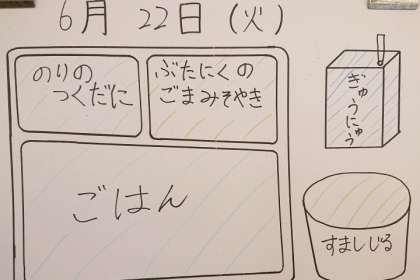 6月 22日 (火)
のりの
つくだに
ぶたにくの
ごまみそやき
ぎゅうにゅう
ごはん
すましじる